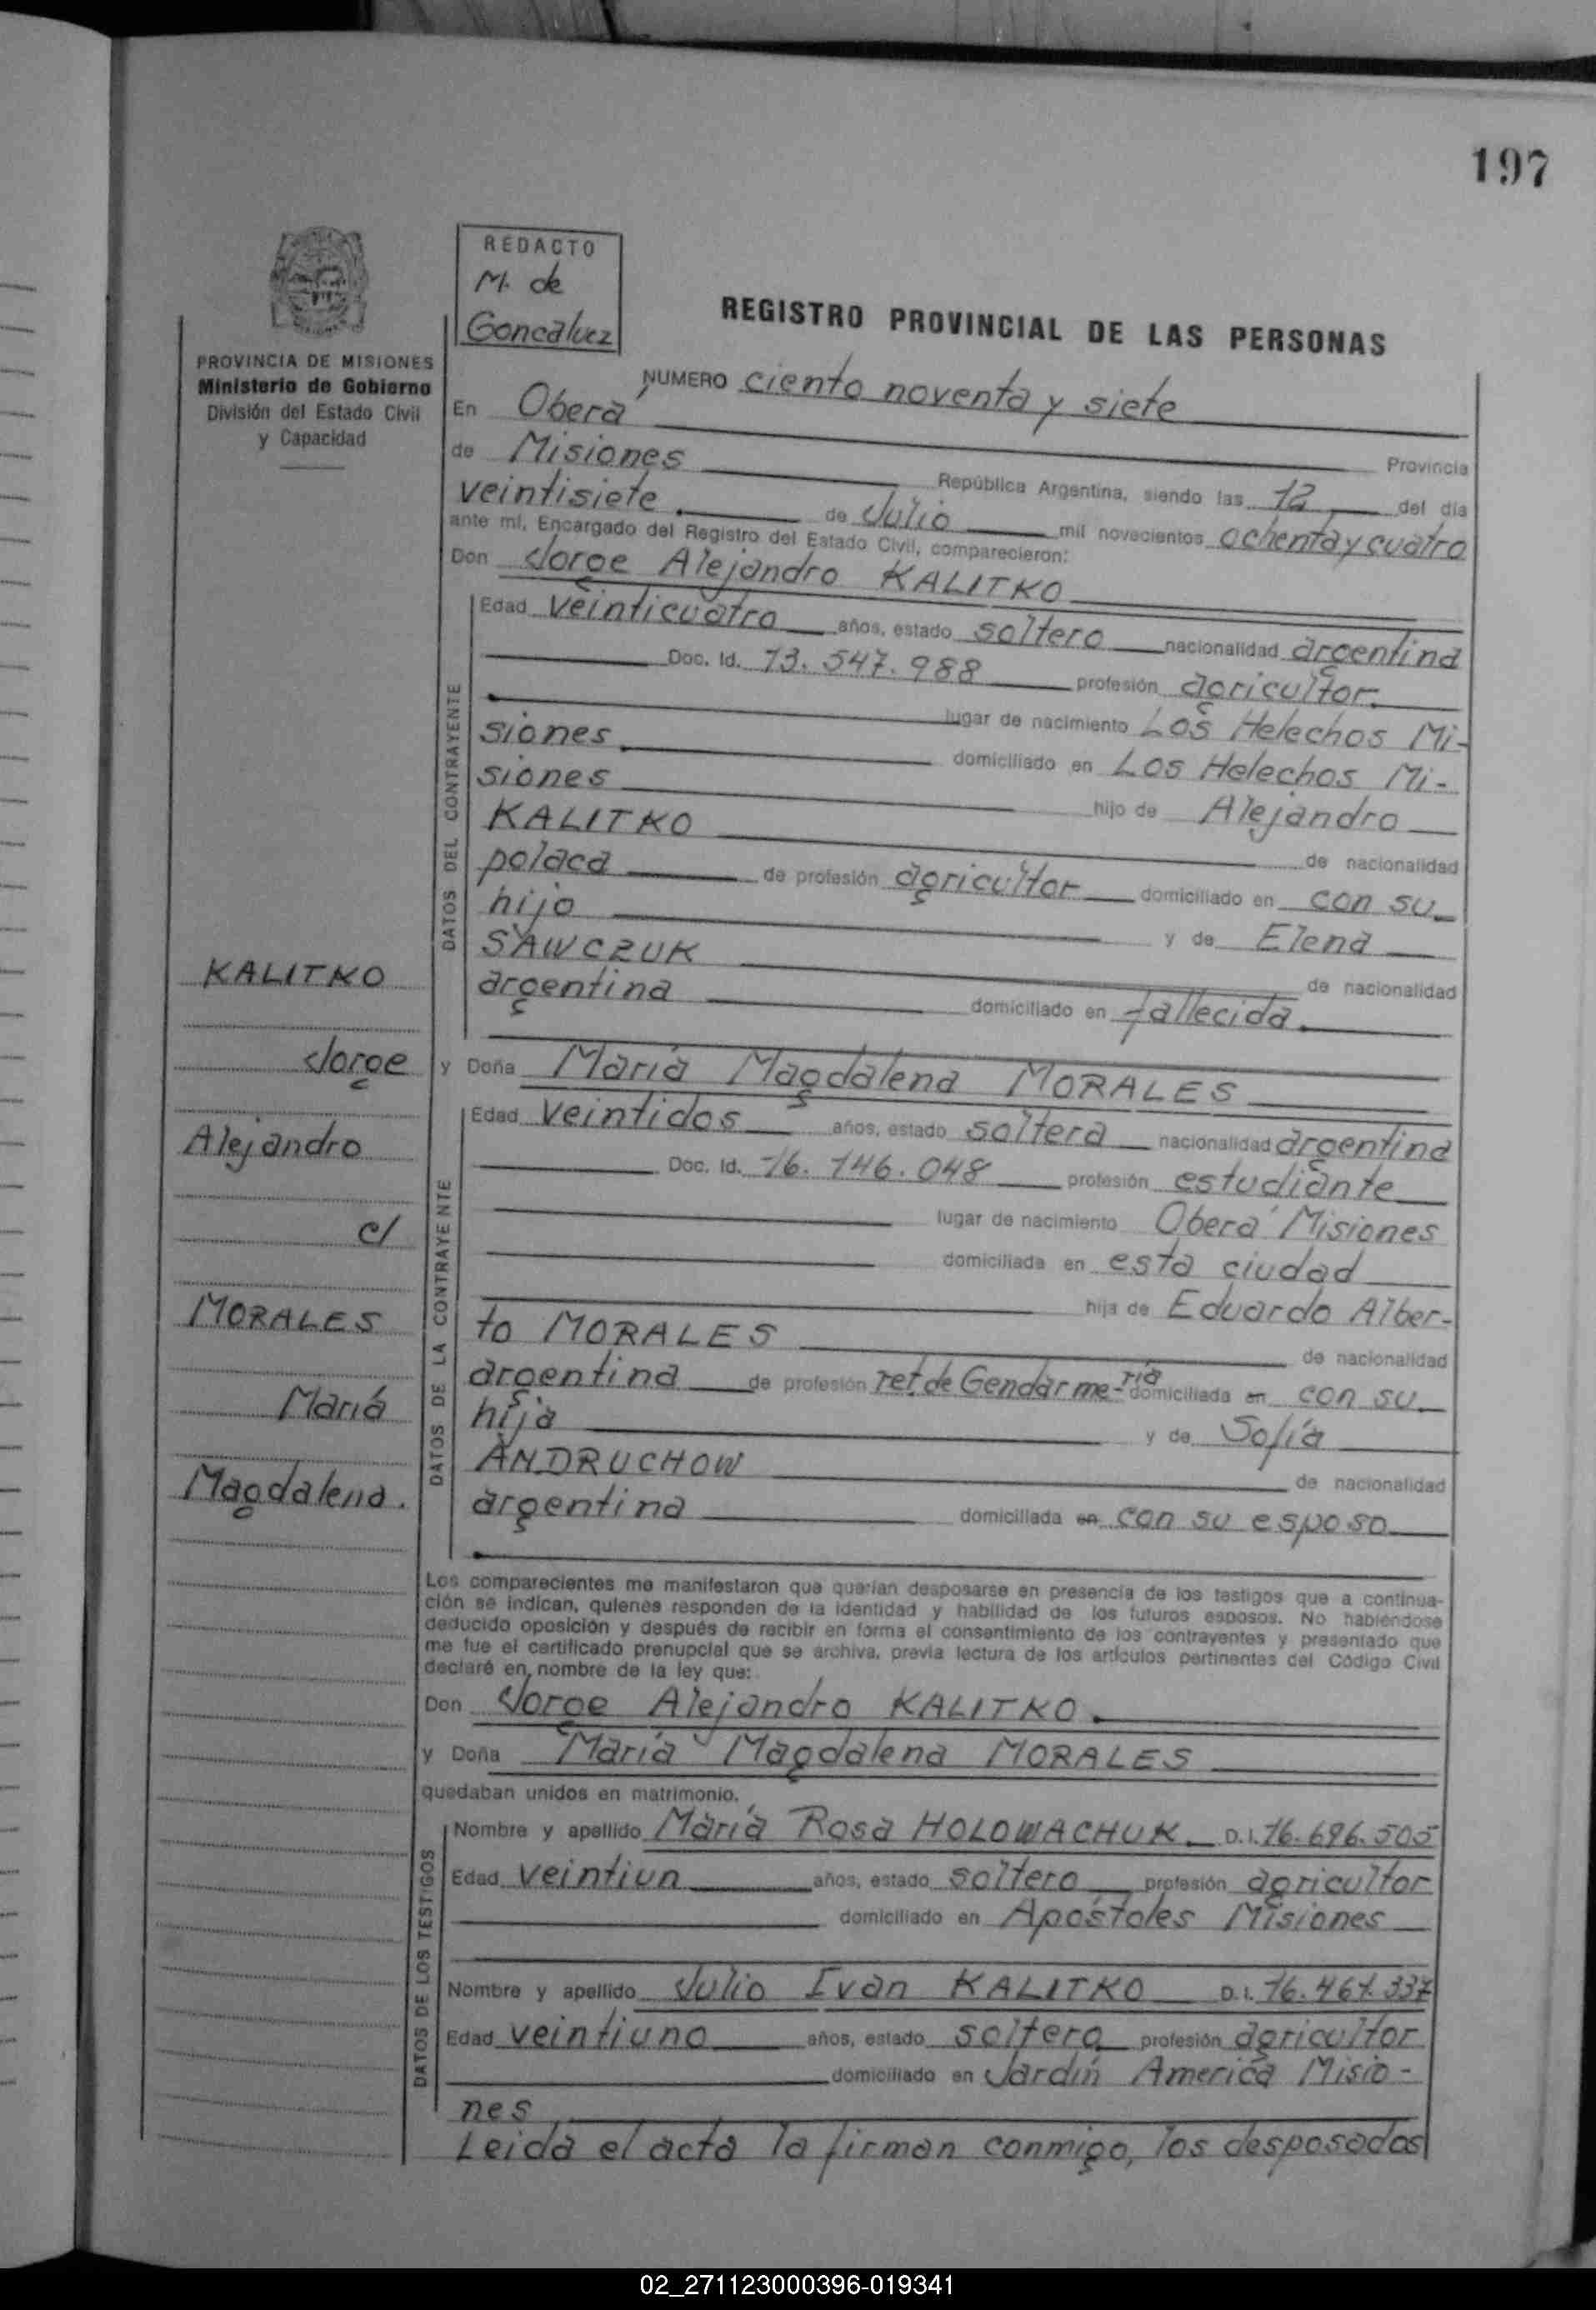 197
REDACTO
M. de
Goncalvez
REGISTRO PROVINCIAL DE LAS PERSONAS
PROVINCIA DE MISIONES
Ministerio de Gobierno
División del Estado Civil
y Capacidad
NUMERO ciento noventa y siete
En Oberá
Provincia
de Misiones República Argentina, siendo las 12 del día
veintisiete de Julio mil novecientos ochenta y cuatro
ante mí, Encargado del Registro del Estado Civil, comparecieron:
Don Jorge Alejandro KALITKO
DATOS DEL CONTRAYENTE
Edad veinticuatro años, estado soltero nacionalidad argentina
Doc. Id. 13.547.988 profesión agricultor.
lugar de nacimiento Los Helechos Mi-
siones. domiciliado en Los Helechos Mi-
siones hijo de Alejandro
KALITKO de nacionalidad
polaca de profesión agricultor domiciliado en con su
hijo y de Elena
SAWCZUK de nacionalidad
argentina domiciliado en fallecida.
y Doña María Magdalena MORALES
DATOS DE LA CONTRAYENTE
Edad veintidos años, estado soltera nacionalidad argentina
Doc. Id. 16.146.048 profesión estudiante
lugar de nacimiento Oberá Misiones
domiciliada en esta ciudad
hija de Eduardo Alber-
to MORALES de nacionalidad
argentina de profesión ret. de Gendarme-ría domiciliada en con su
hija y de Sofía
ANDRUCHOW de nacionalidad
argentina domiciliada en con su esposo
KALITKO
Jorge
Alejandro
c/
MORALES
María
Magdalena.
Los comparecientes me manifestaron que querían desposarse en presencia de los testigos que a continua-
ción se indican, quienes responden de la identidad y habilidad de los futuros esposos. No habiéndose
deducido oposición y después de recibir en forma el consentimiento de los contrayentes y presentado que
me fue el certificado prenupcial que se archiva, previa lectura de los artículos pertinentes del Código Civil
declaré en nombre de la ley que:
Don Jorge Alejandro KALITKO.
y Doña María Magdalena MORALES
quedaban unidos en matrimonio.
DATOS DE LOS TESTIGOS
Nombre y apellido María Rosa HOLOWACHUK D.I. 16.696.505
Edad veintiun años, estado soltero profesión agricultor
domiciliado en Apóstoles Misiones
Nombre y apellido Julio Ivan KALITKO D.I. 16.461.337
Edad veintiuno años, estado soltero profesión agricultor
domiciliado en Jardín America Misio-
nes
Leida el acta la firman conmigo, los desposados
02_271123000396-019341